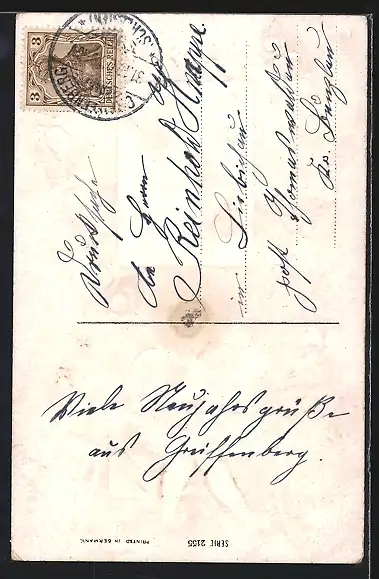 3 DEUTSCHES REICH 3
Drucksache
An Herrn
Reinhold Knappe
in Liebichau
post
Kr. Bunzlau
Viele Neujahrsgrüße
aus Greiffenberg.
SERIE 2155
PRINTED IN GERMANY.